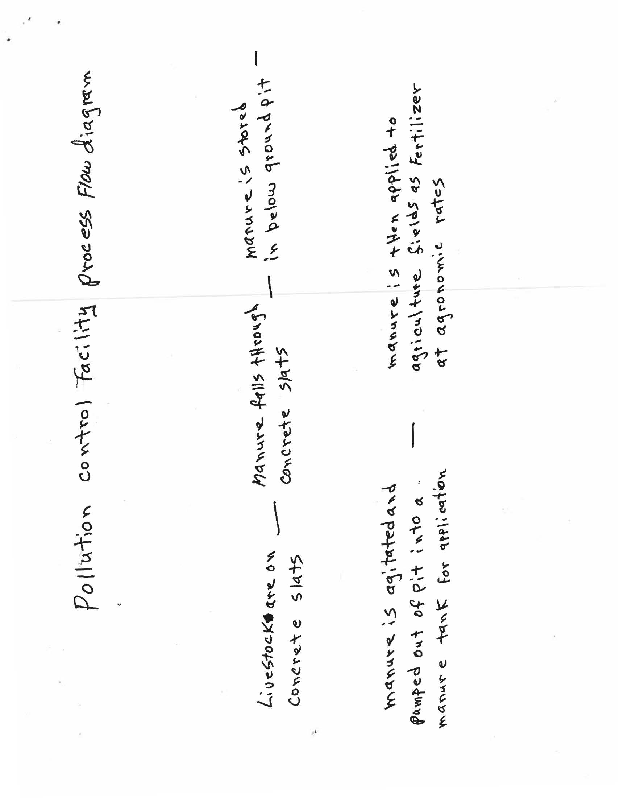 Pollution control Facility process Flow diagram
Livestock are on — Manure falls through — manure is stored
concrete slats concrete slats in below ground pit —
manure is agitated and — manure is then applied to
pumped out of pit into a agriculture fields as fertilizer
manure tank for application at agronomic rates